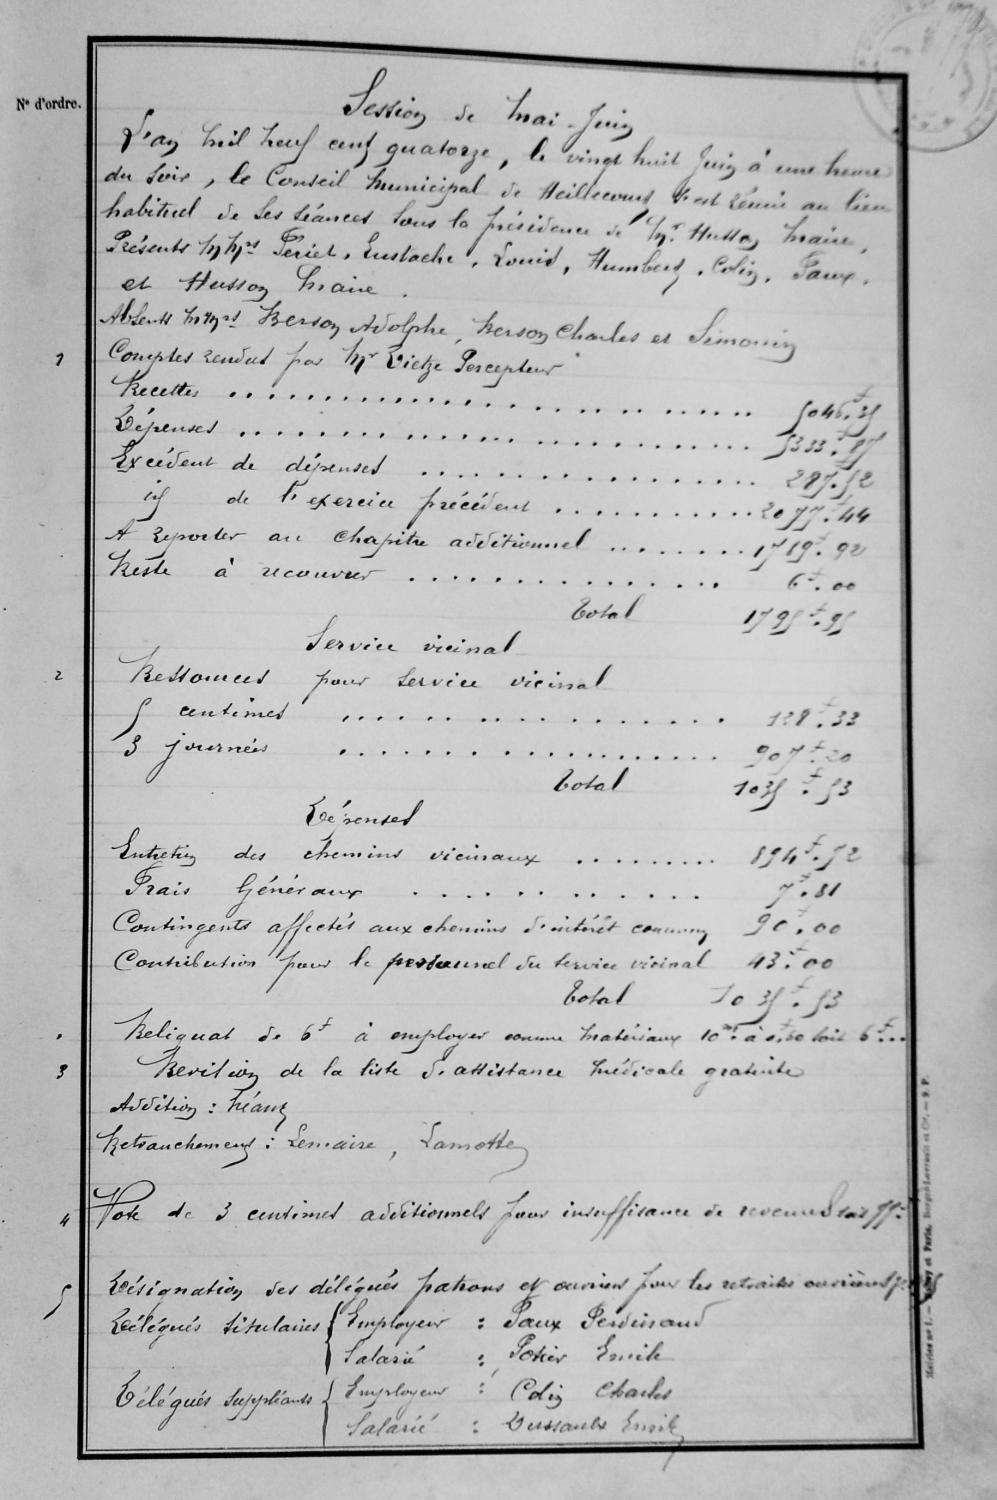 N° d'ordre.
Session de Mai-Juin
L'an mil neuf cent quatorze, le vingt huit Juin à une heure
du soir, le Conseil Municipal de Heillecourt s'est réuni au lieu
habituel de ses séances sous la présidence de Mr Husson Maire,
Présents MMrs Periet, Eustache, Louis, Humbert, Colin, Faux,
et Husson Maire.
Absents MMrs Kerson Adolphe, Kerson Charles et Simonin
1 Comptes rendus par Mr Dietze Percepteur
Recettes 5046f.35
Dépenses 5333f.87
Excédent de dépenses 287f.52
id de l'exercice précédent 2077f.44
A reporter au chapitre additionnel 1789f.92
Reste à recouvrer 6f.00
Total 1795f.95
Service vicinal
2 Ressources pour service vicinal
5 centimes 128f.33
3 journées 907f.20
Total 1035f.53
Dépenses
Entretien des chemins vicinaux 894f.52
Frais Généraux 7f.81
Contingents affectés aux chemins d'intérêt commun 90f.00
Contribution pour le personnel du service vicinal 43f.00
Total 1035f.53
Reliquat de 6f à employer comme matériaux 10m à 0f,60 soit 6f
3 Révision de la liste d'assistance médicale gratuite
Addition : Néant
Retranchement : Lemaire, Lamotte
4 Vote de 3 centimes additionnels pour insuffisance de revenus soit 77f
5 Désignation des délégués patrons et ouvriers pour les retraites ouvrières
Délégués titulaires { Employeur : Faux Ferdinand
Salarié : Potier Emile
Délégués suppléants { Employeur : Colin Charles
Salarié : Dussaulx Emile